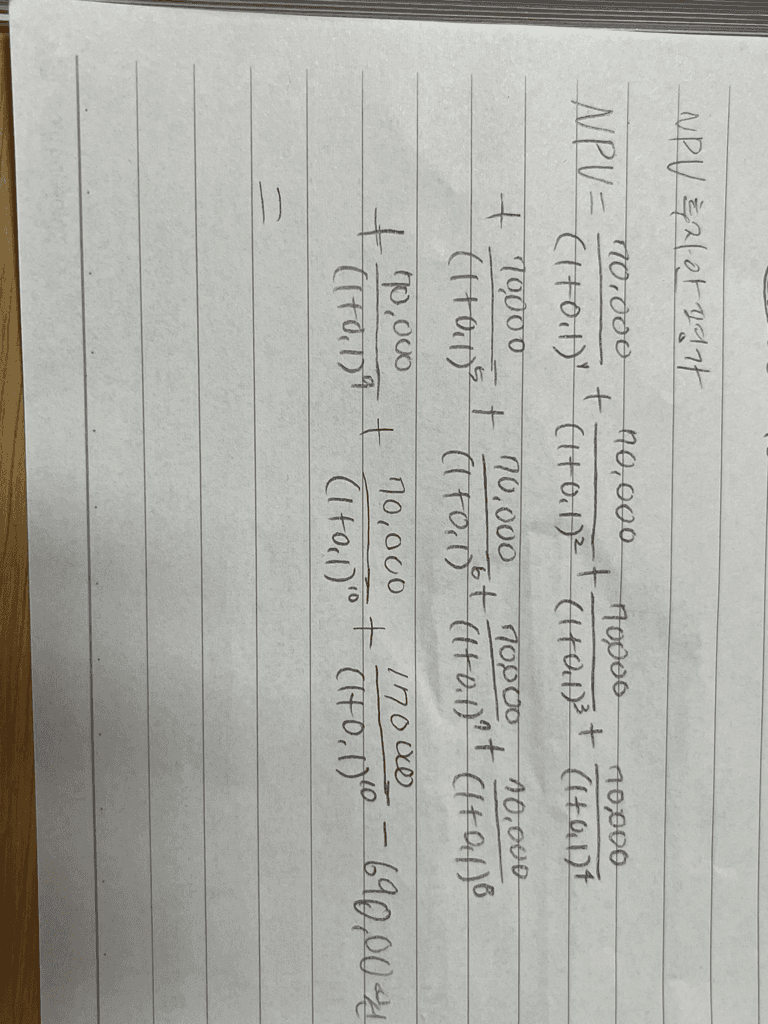 NPV 투자안 평가
NPV = 70,000/(1+0.1)¹ + 70,000/(1+0.1)² + 70,000/(1+0.1)³ + 70,000/(1+0.1)⁴
+ 70,000/(1+0.1)⁵ + 70,000/(1+0.1)⁶ + 70,000/(1+0.1)⁷ + 70,000/(1+0.1)⁸
+ 70,000/(1+0.1)⁹ + 70,000/(1+0.1)¹⁰ + 170000/(1+0.1)¹⁰ - 690,00
=